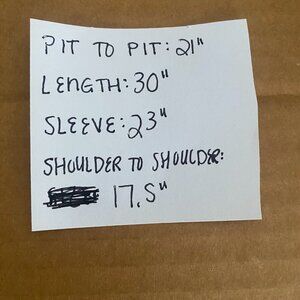 PIT TO PIT: 21"
LENGTH: 30"
SLEEVE: 23"
SHOULDER TO SHOULDER:
17.5"